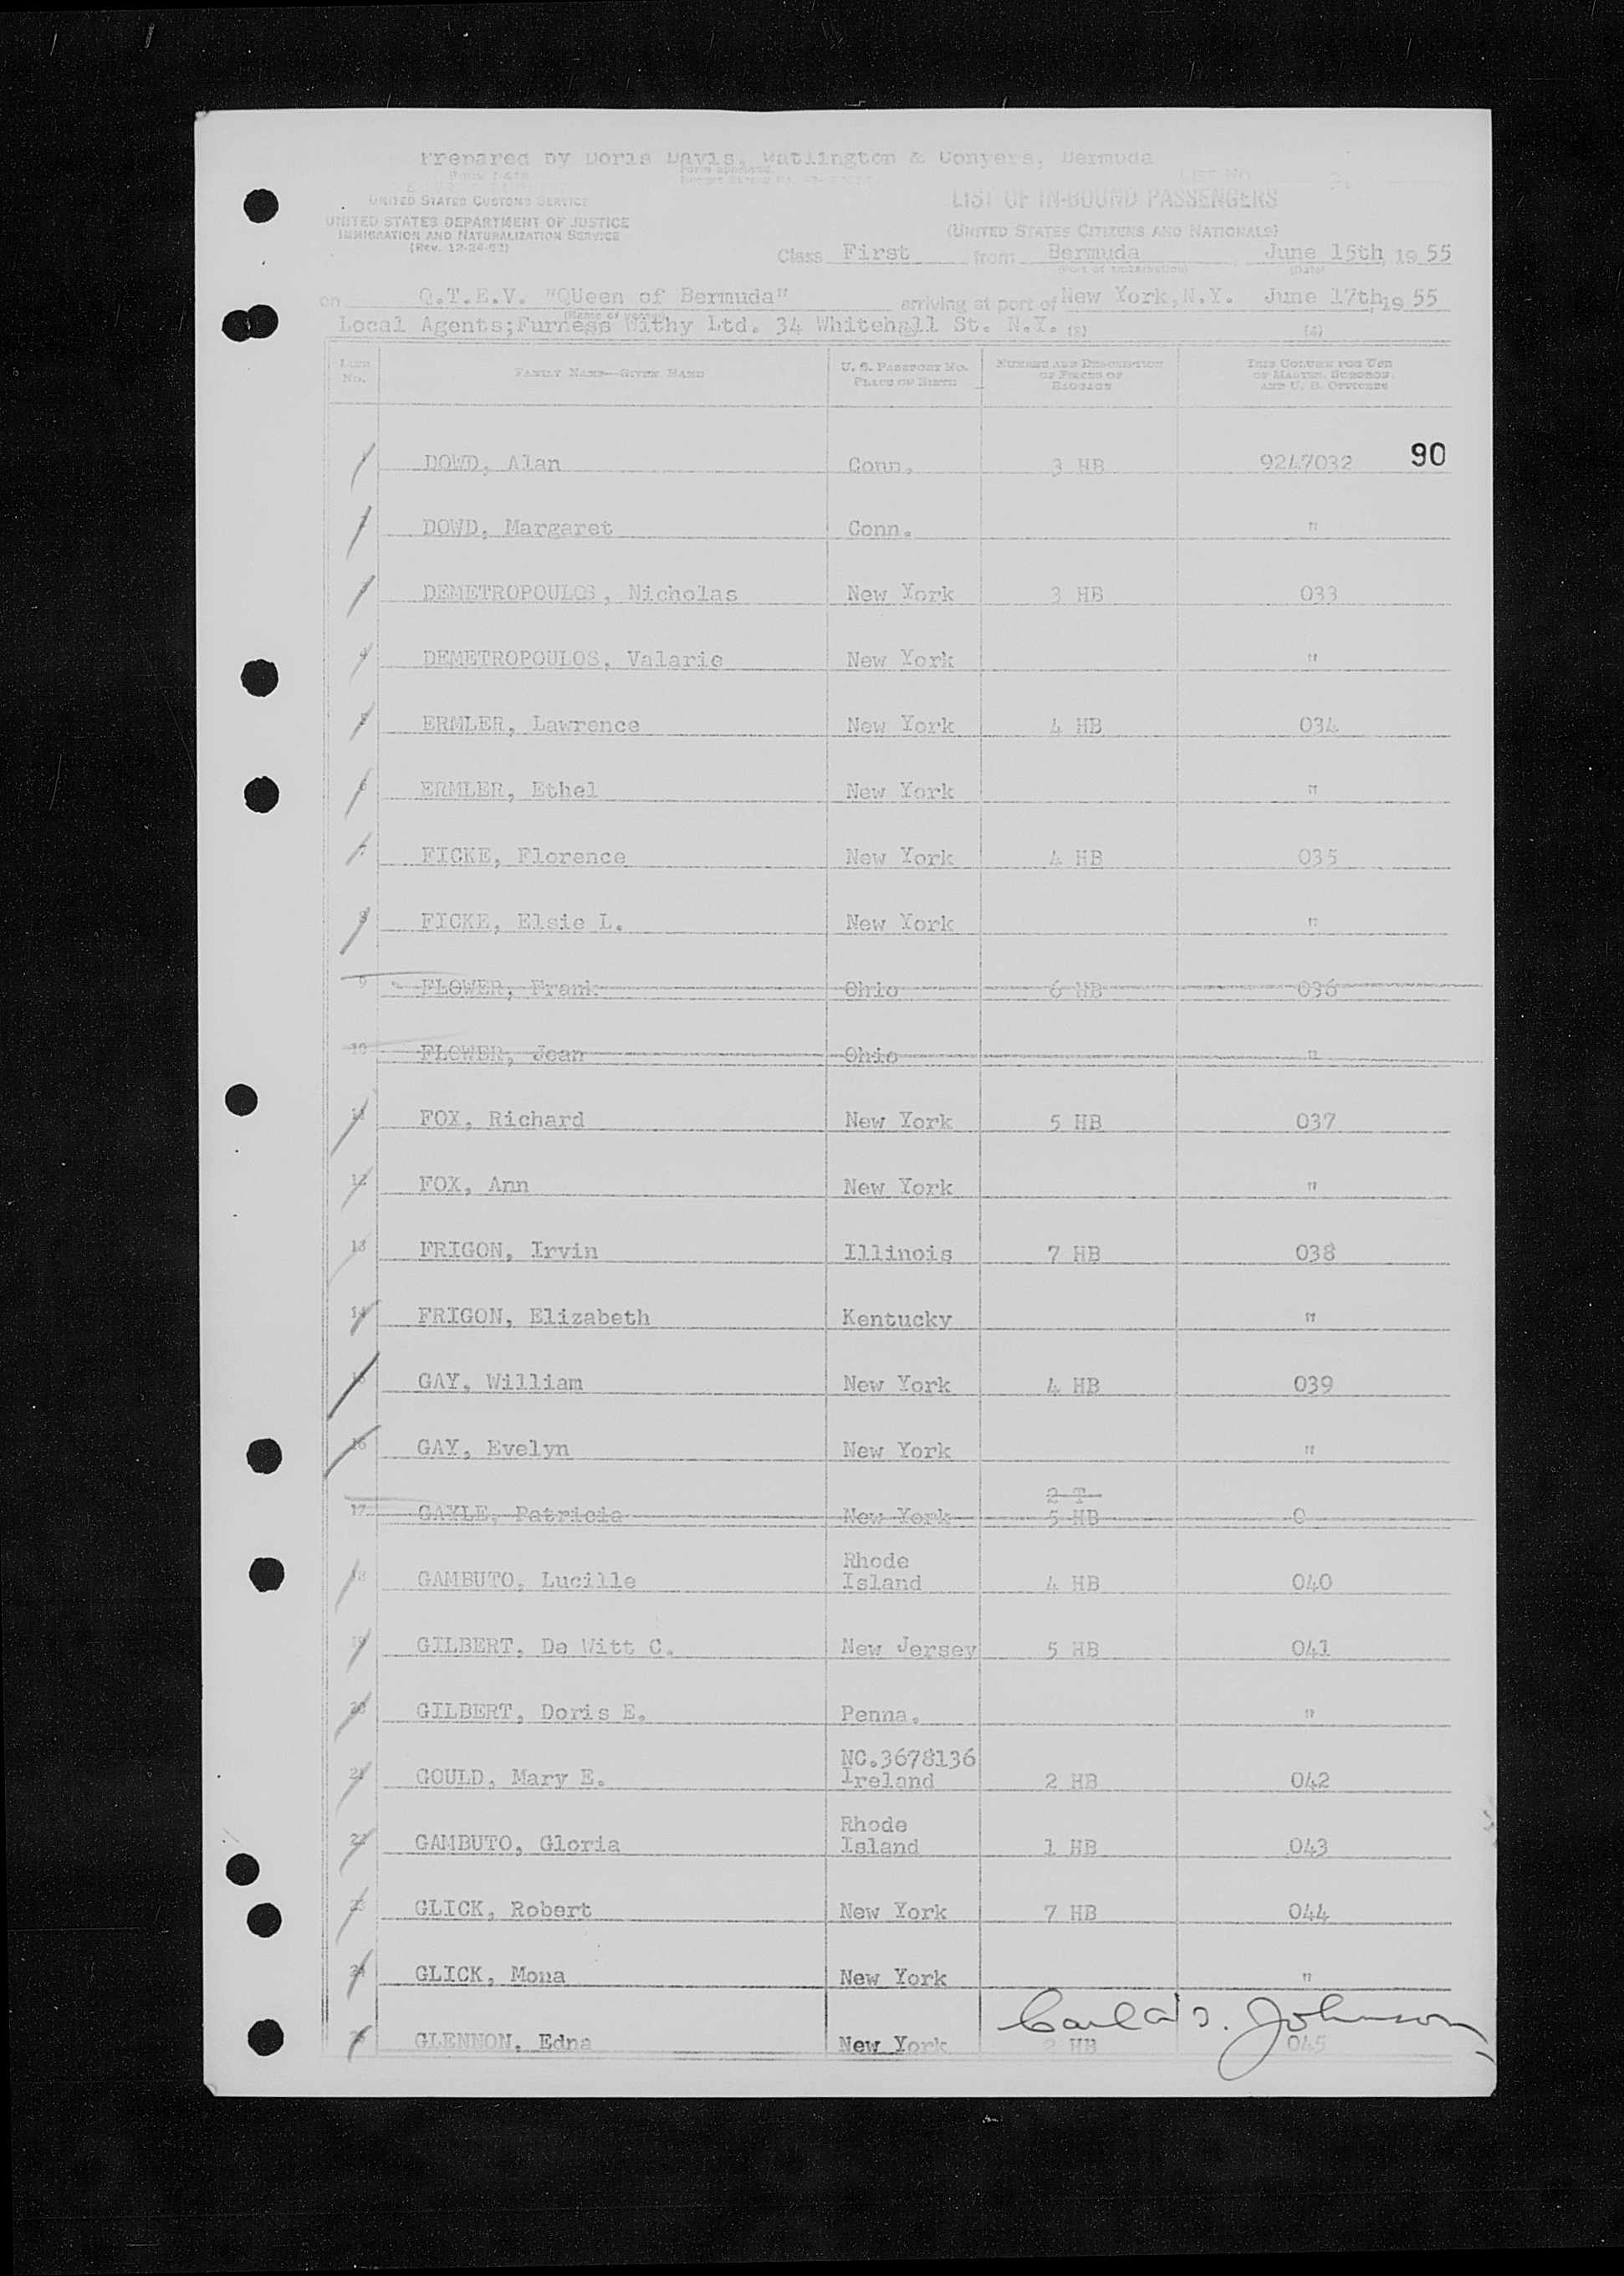 Prepared by Doris Davis, Watlington & Conyers, Bermuda
UNITED STATES CUSTOMS SERVICE
UNITED STATES DEPARTMENT OF JUSTICE
IMMIGRATION AND NATURALIZATION SERVICE
(Rev. 12-24-52)
LIST NO.
LIST OF IN-BOUND PASSENGERS
(UNITED STATES CITIZENS AND NATIONALS)
Class First from Bermuda, June 15th, 1955
(Port of embarkation) (Date)
on Q.T.E.V. "QUeen of Bermuda" arriving at port of New York, N.Y. June 17th, 1955
(Name of vessel)
Local Agents;Furness Withy Ltd. 34 Whitehall St. N.Y. (3) (4)
LINE NO. FAMILY NAME—GIVEN NAME U. S. PASSPORT NO. PLACE OF BIRTH NUMBER AND DESCRIPTION OF PIECES OF BAGGAGE THIS COLUMN FOR USE OF MASTER, SURGEON, AND U. S. OFFICERS
1 DOWD, Alan Conn. 3 HB 9247032 90
2 DOWD, Margaret Conn. "
3 DEMETROPOULOS, Nicholas New York 3 HB 033
4 DEMETROPOULOS, Valarie New York "
5 ERMLER, Lawrence New York 4 HB 034
6 ERMLER, Ethel New York "
7 FICKE, Florence New York 4 HB 035
8 FICKE, Elsie L. New York "
9 FLOWER, Frank Ohio 6 HB 036
10 FLOWER, Jean Ohio "
11 FOX, Richard New York 5 HB 037
12 FOX, Ann New York "
13 FRIGON, Irvin Illinois 7 HB 038
14 FRIGON, Elizabeth Kentucky "
15 GAY, William New York 4 HB 039
16 GAY, Evelyn New York "
2 T
17 GAYLE, Patricia New York 5 HB 0
Rhode
18 GAMBUTO, Lucille Island 4 HB 040
19 GILBERT, De Witt C. New Jersey 5 HB 041
20 GILBERT, Doris E. Penna. "
NC.3678136
21 GOULD, Mary E. Ireland 2 HB 042
Rhode
22 GAMBUTO, Gloria Island 1 HB 043
23 GLICK, Robert New York 7 HB 044
24 GLICK, Mona New York "
Johnson
25 GLENNON, Edna New York 2 HB 045